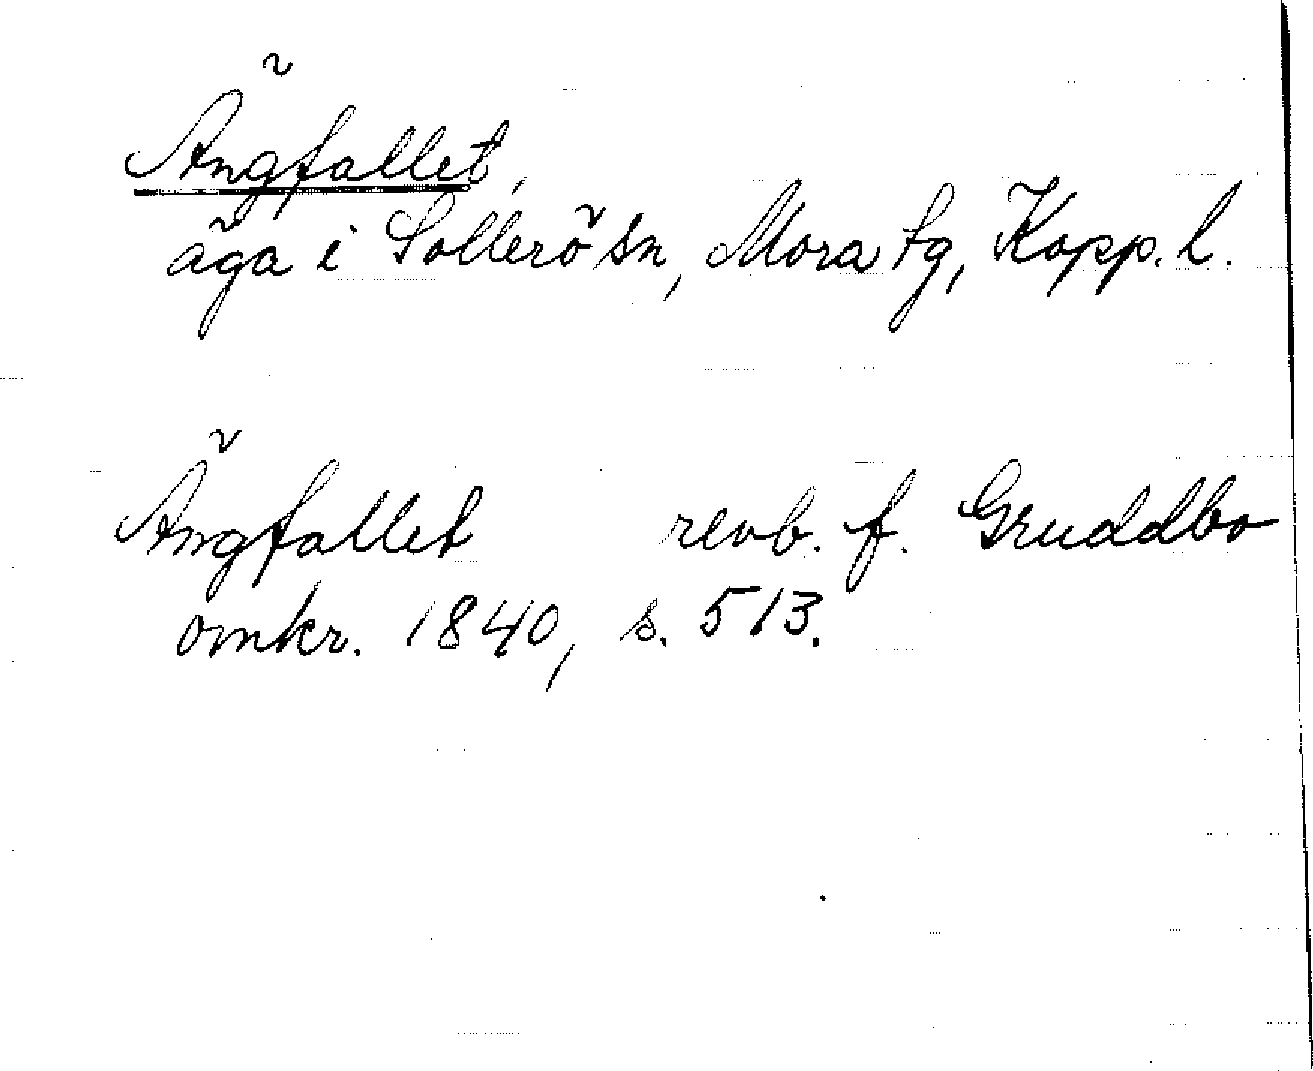 Ängfallet,
äga i Sollerö sn, Mora tg, Kopp. l.
Ängfallet revb. f. Gruddbo
omkr. 1840, s. 513.